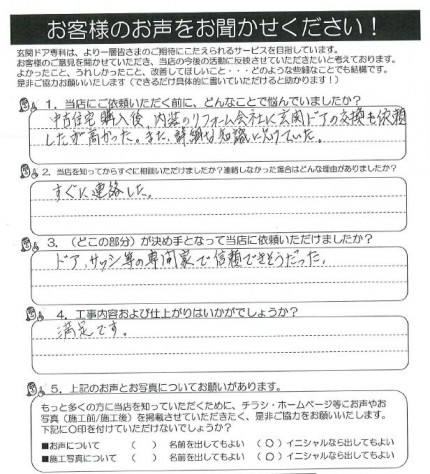 お客様のお声をお聞かせください！
玄関ドア専科は、より一層皆さまのご期待にこたえられるサービスを目指しています。
お客様のご意見を聞かせていただき、当店の今後の活動に反映させていただきたいと考えております。
よかったこと、うれしかったこと、改善してほしいこと・・・どのような些細なことでも結構です。
是非ご協力お願いいたします（できるだけ具体的に書いていただけると助かります！）
1．当店にご依頼いただく前に、どんなことで悩んでいましたか？
中古住宅購入後、内装のリフォーム会社に玄関ドアの交換も依頼
したが高かった。また、詳細な知識に欠けていた。
2．当店を知ってからすぐに相談いただけましたか？連絡しなかった場合はどんな理由がありましたか？
すぐに連絡した。
3．（どこの部分）が決め手となって当店に依頼いただけましたか？
ドア、サッシ等の専門家で信頼できそうだった。
4．工事内容および仕上がりはいかがでしょうか？
満足です。
5．上記のお声とお写真についてお願いがあります。
もっと多くの方に当店を知っていただくために、チラシ・ホームページ等にお声やお
写真（施工前/施工後）を掲載させていただきたく、是非ご協力をお願いいたします。
下記に〇印を付けていただけないでしょうか？
■お声について （ ） 名前を出してもよい （〇）イニシャルなら出してもよい
■施工写真について （ ） 名前を出してもよい （〇）イニシャルなら出してもよい